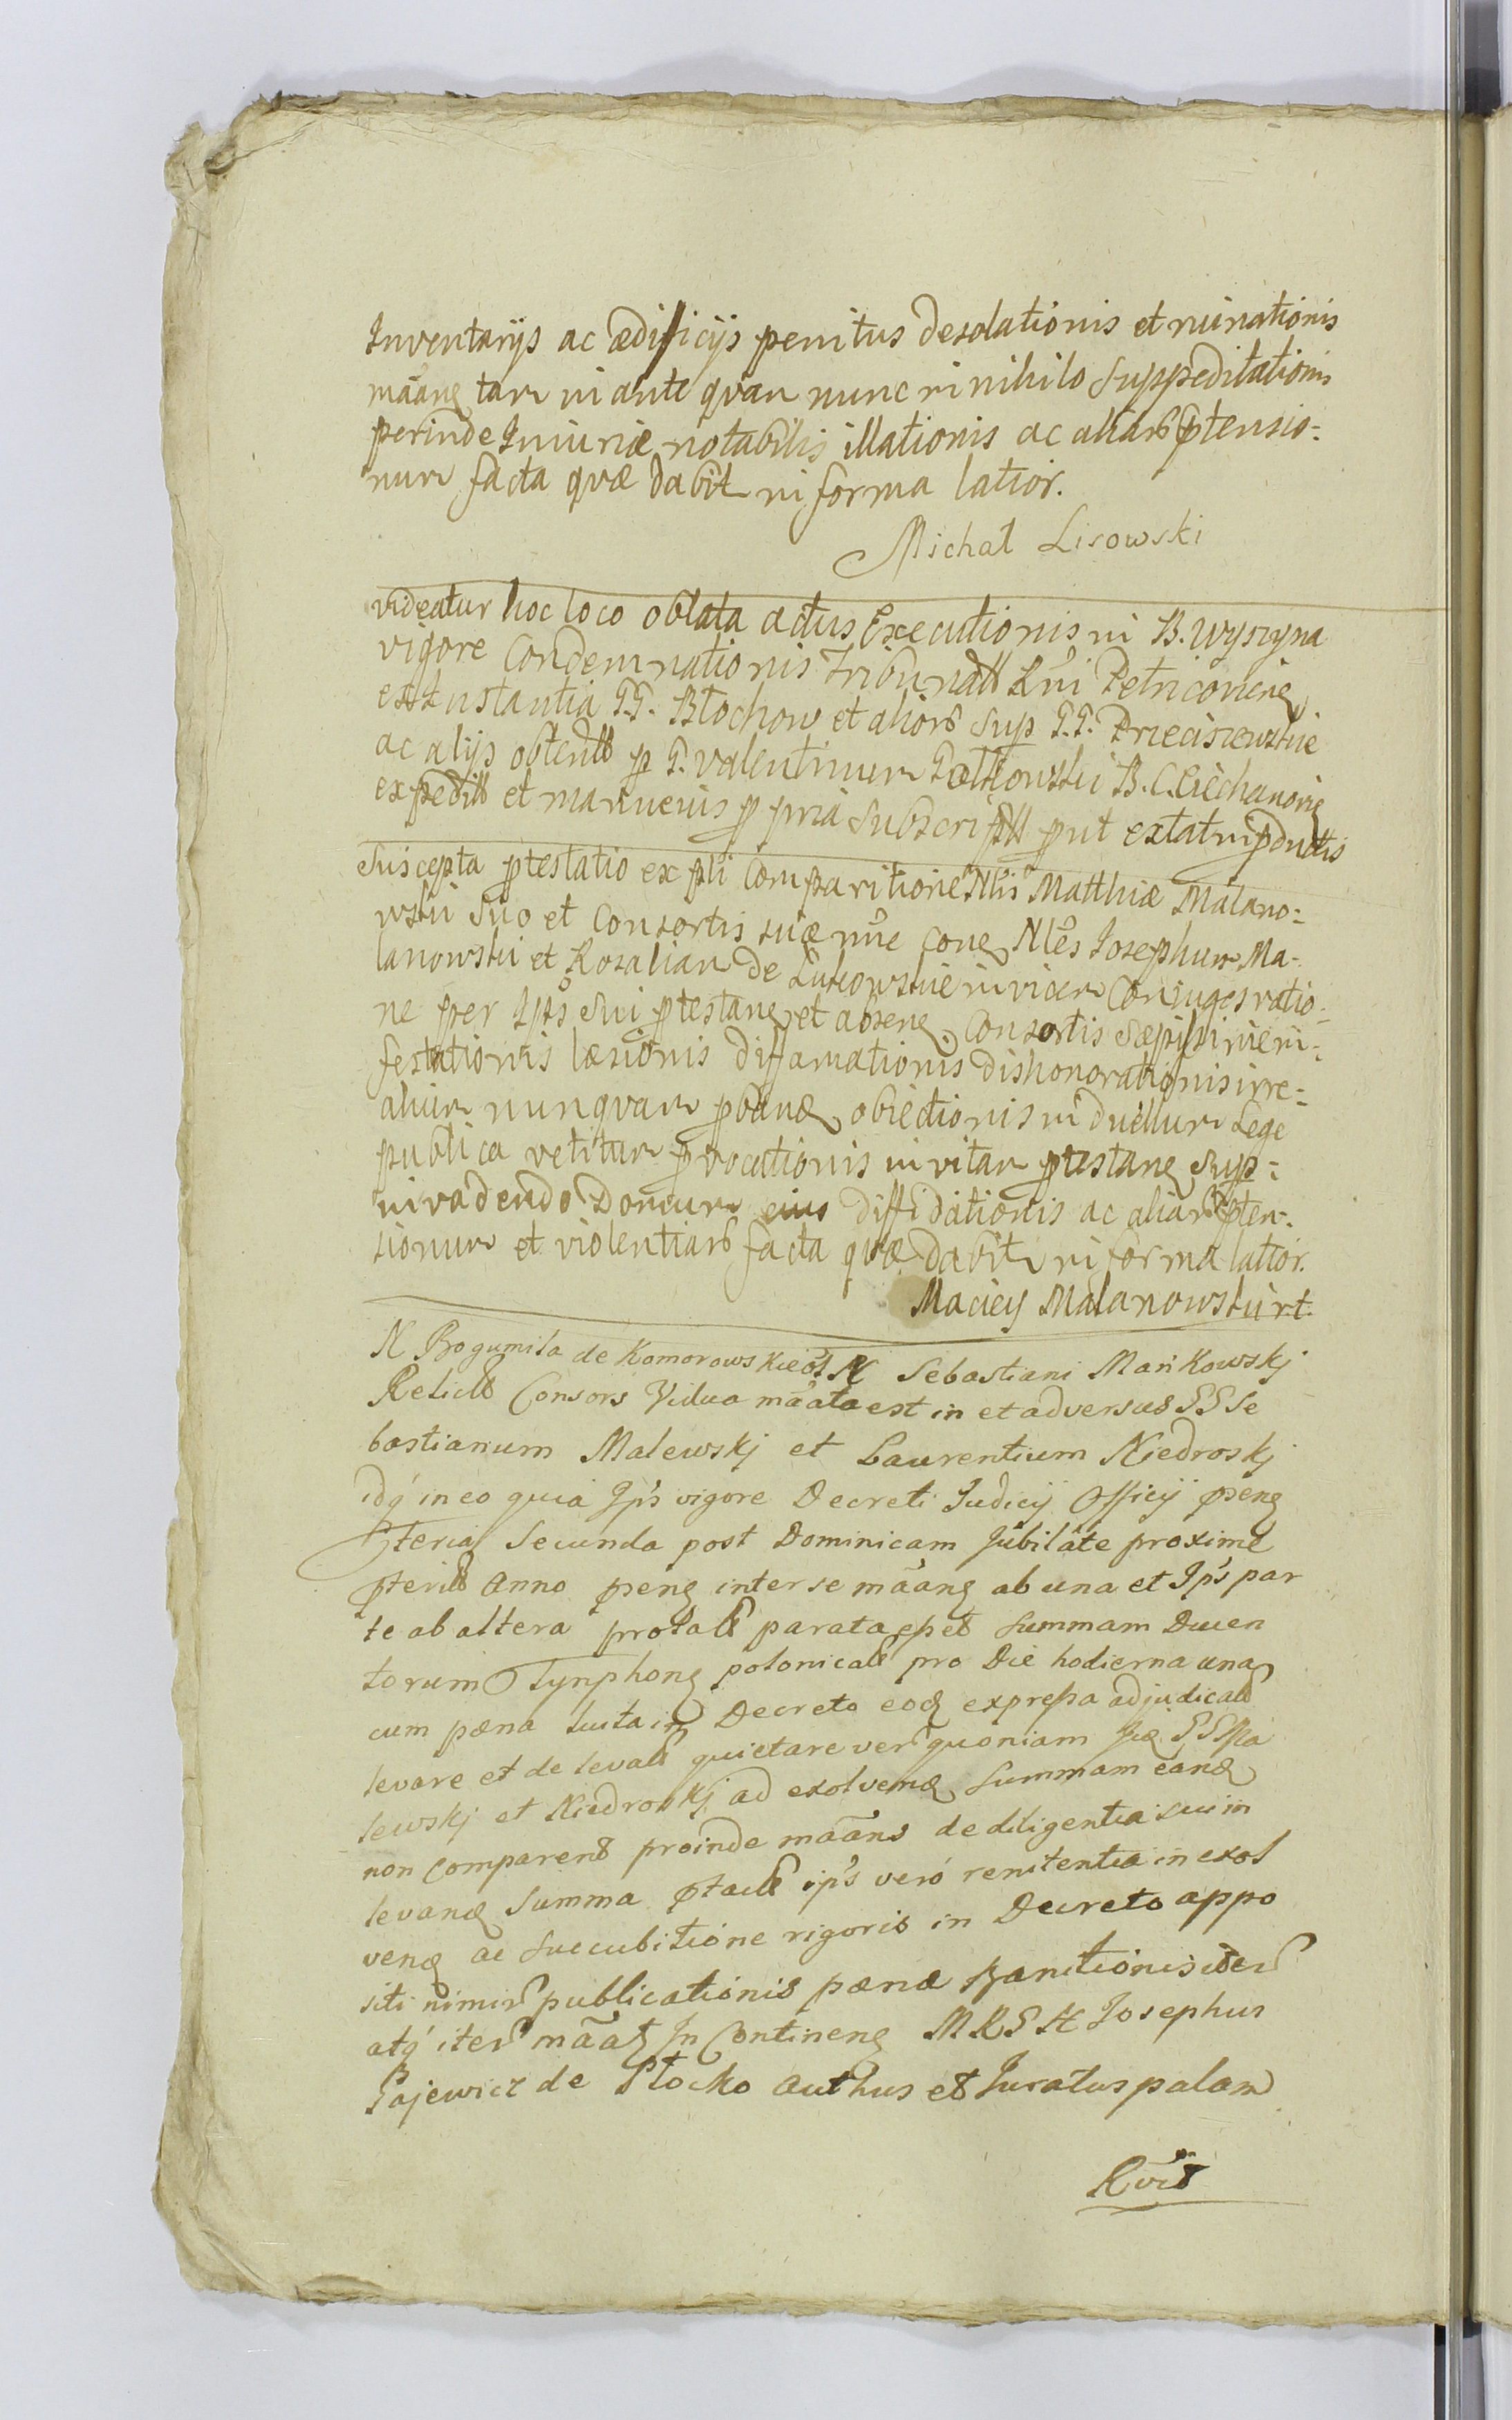 Inventarijs ac ædificijs penitus desolationis et ruinationis
mãang tam in ante quam nunc in nihilo Suppeditationis
perinde Iniuriæ notabilis illationis ac aliar ptensio=
num facta quæ dabit in forma latior.
Michał Lisowski
videatur hoc loco oblata actus Executionis in B. Wyszyna
vigore Condemnationis Tribunall Rni Petricovien
ex Instantia G.G. Błochow et alior Sup G.G.
ac alijs obtent p G. Valentinum B. C. Ciechanovien
expedit et manu eius ppria Subscript put extat in
Suscepta ptestatio ex pli Comparitione Nlis Matthiæ Malano=
wski Suo et Consortis suæ nne Con Nles Iosephum Ma-
lanowski et Rosaliam de Lukowskie invicem Coniuges ratio=
ne per Ipsos Sui ptestan et absen Consortis sæpissime in=
festationis læsionis diffamationis dishonorationis irre=
alium nunquam pban obiectionis in duellum Lege
publica vetitum pvocationis in vitam ptestan Sup=
invadendo Domum eius diffidationis ac aliar pten-
sionum et violentiar facta quæ dabit in forma latior.
Maciey Malanowski rt
N Bogumila de Komorowskie ol N Sebastiani Mańkowskj
Relict Consors Vidua mãata est in et adversus GG Se
bastianum Malewskj et Laurentium Niedroskj
idq́ in eo quia Ips vigore Decreti Iudicij Officij pseng
Feria Secunda post Dominicam Jubiláte proximé
pterit Anno pseng inter se mãang ab una et Ips par
te ab altera prolat parata erat Summam Ducen
torum Tynphong polonical pro Die hodierna una
cum pæna luita in Decreto eod expressa adjudicat
levare et de levat quietare ver quoniam GG Ma
lewskj et Niedroskj ad exolvend Summam eand
non comparent proinde mãans de diligentia sui in
levand Summa ptact ips veró renitentia in exol
vend ac succubitione rigoris in Decreto appo
siti nimir publicationis pænæ Banitionis iter
atq́ iter mãat In Contineng MRGN Iosephus
Gajewicz de Płocko Authus et Iuratus palam